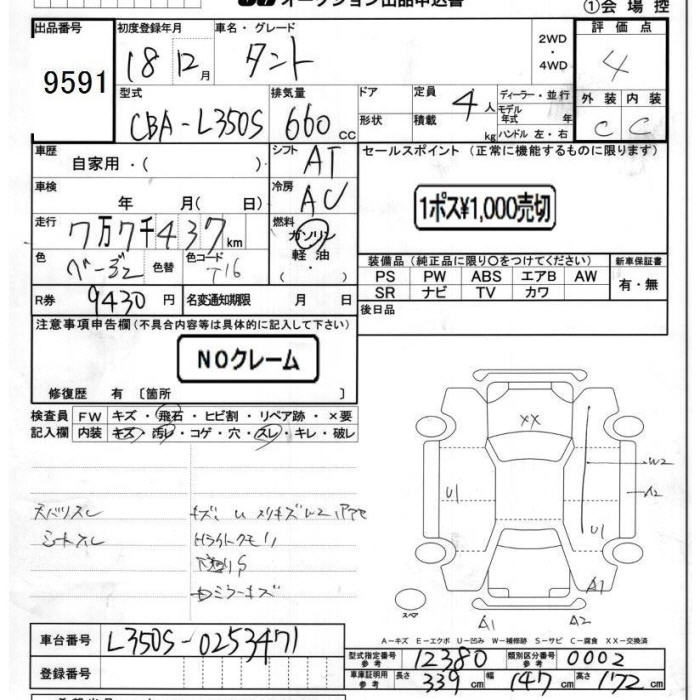 オークション出品申込書
①会場控
出品番号 初度登録年月 車名・グレード 評価点
9591 18 12月 タント 2WD・4WD 4
型式 排気量 ドア 定員 ディーラー・並行 外装 内装
CBA-L350S 660cc 形状 積載 4人 kg モデル年式 年 ハンドル 左・右 C C
車歴 自家用・( ) シフト AT セールスポイント (正常に機能するものに限ります)
車検 年 月( 日) 冷房 AC
1ポス¥1,000売切
走行 7万7千437km 燃料 ガソリン 軽油 ( ・ )
色 ベージュ 色替 色コード T16
装備品(純正品に限り○をつけてください) 新車保証書
PS PW ABS エアB AW 有・無
SR ナビ TV カワ
R券 9430円 名変通知期限 月 日
後日品
注意事項申告欄(不具合内容等は具体的に記入して下さい)
NOクレーム
修復歴 有 〔箇所 〕
検査員 FW キズ・飛石・ヒビ割・リペア跡・×要
記入欄 内装 キズ・汚レ・コゲ・穴・スレ・キレ・破レ
XX
W2
U1 A2
U1
天バリスレ
シートスレ
A1
スペア
A1 A2
A-キズ E-エクボ U-凹み W-補修跡 S-サビ C-腐食 XX-交換済
車台番号 L350S-0253471
型式指定番号 参考 12380 類別区分番号 参考 0002
登録番号 車庫証明用 参考 長さ 339cm 幅 147cm 高さ 172cm